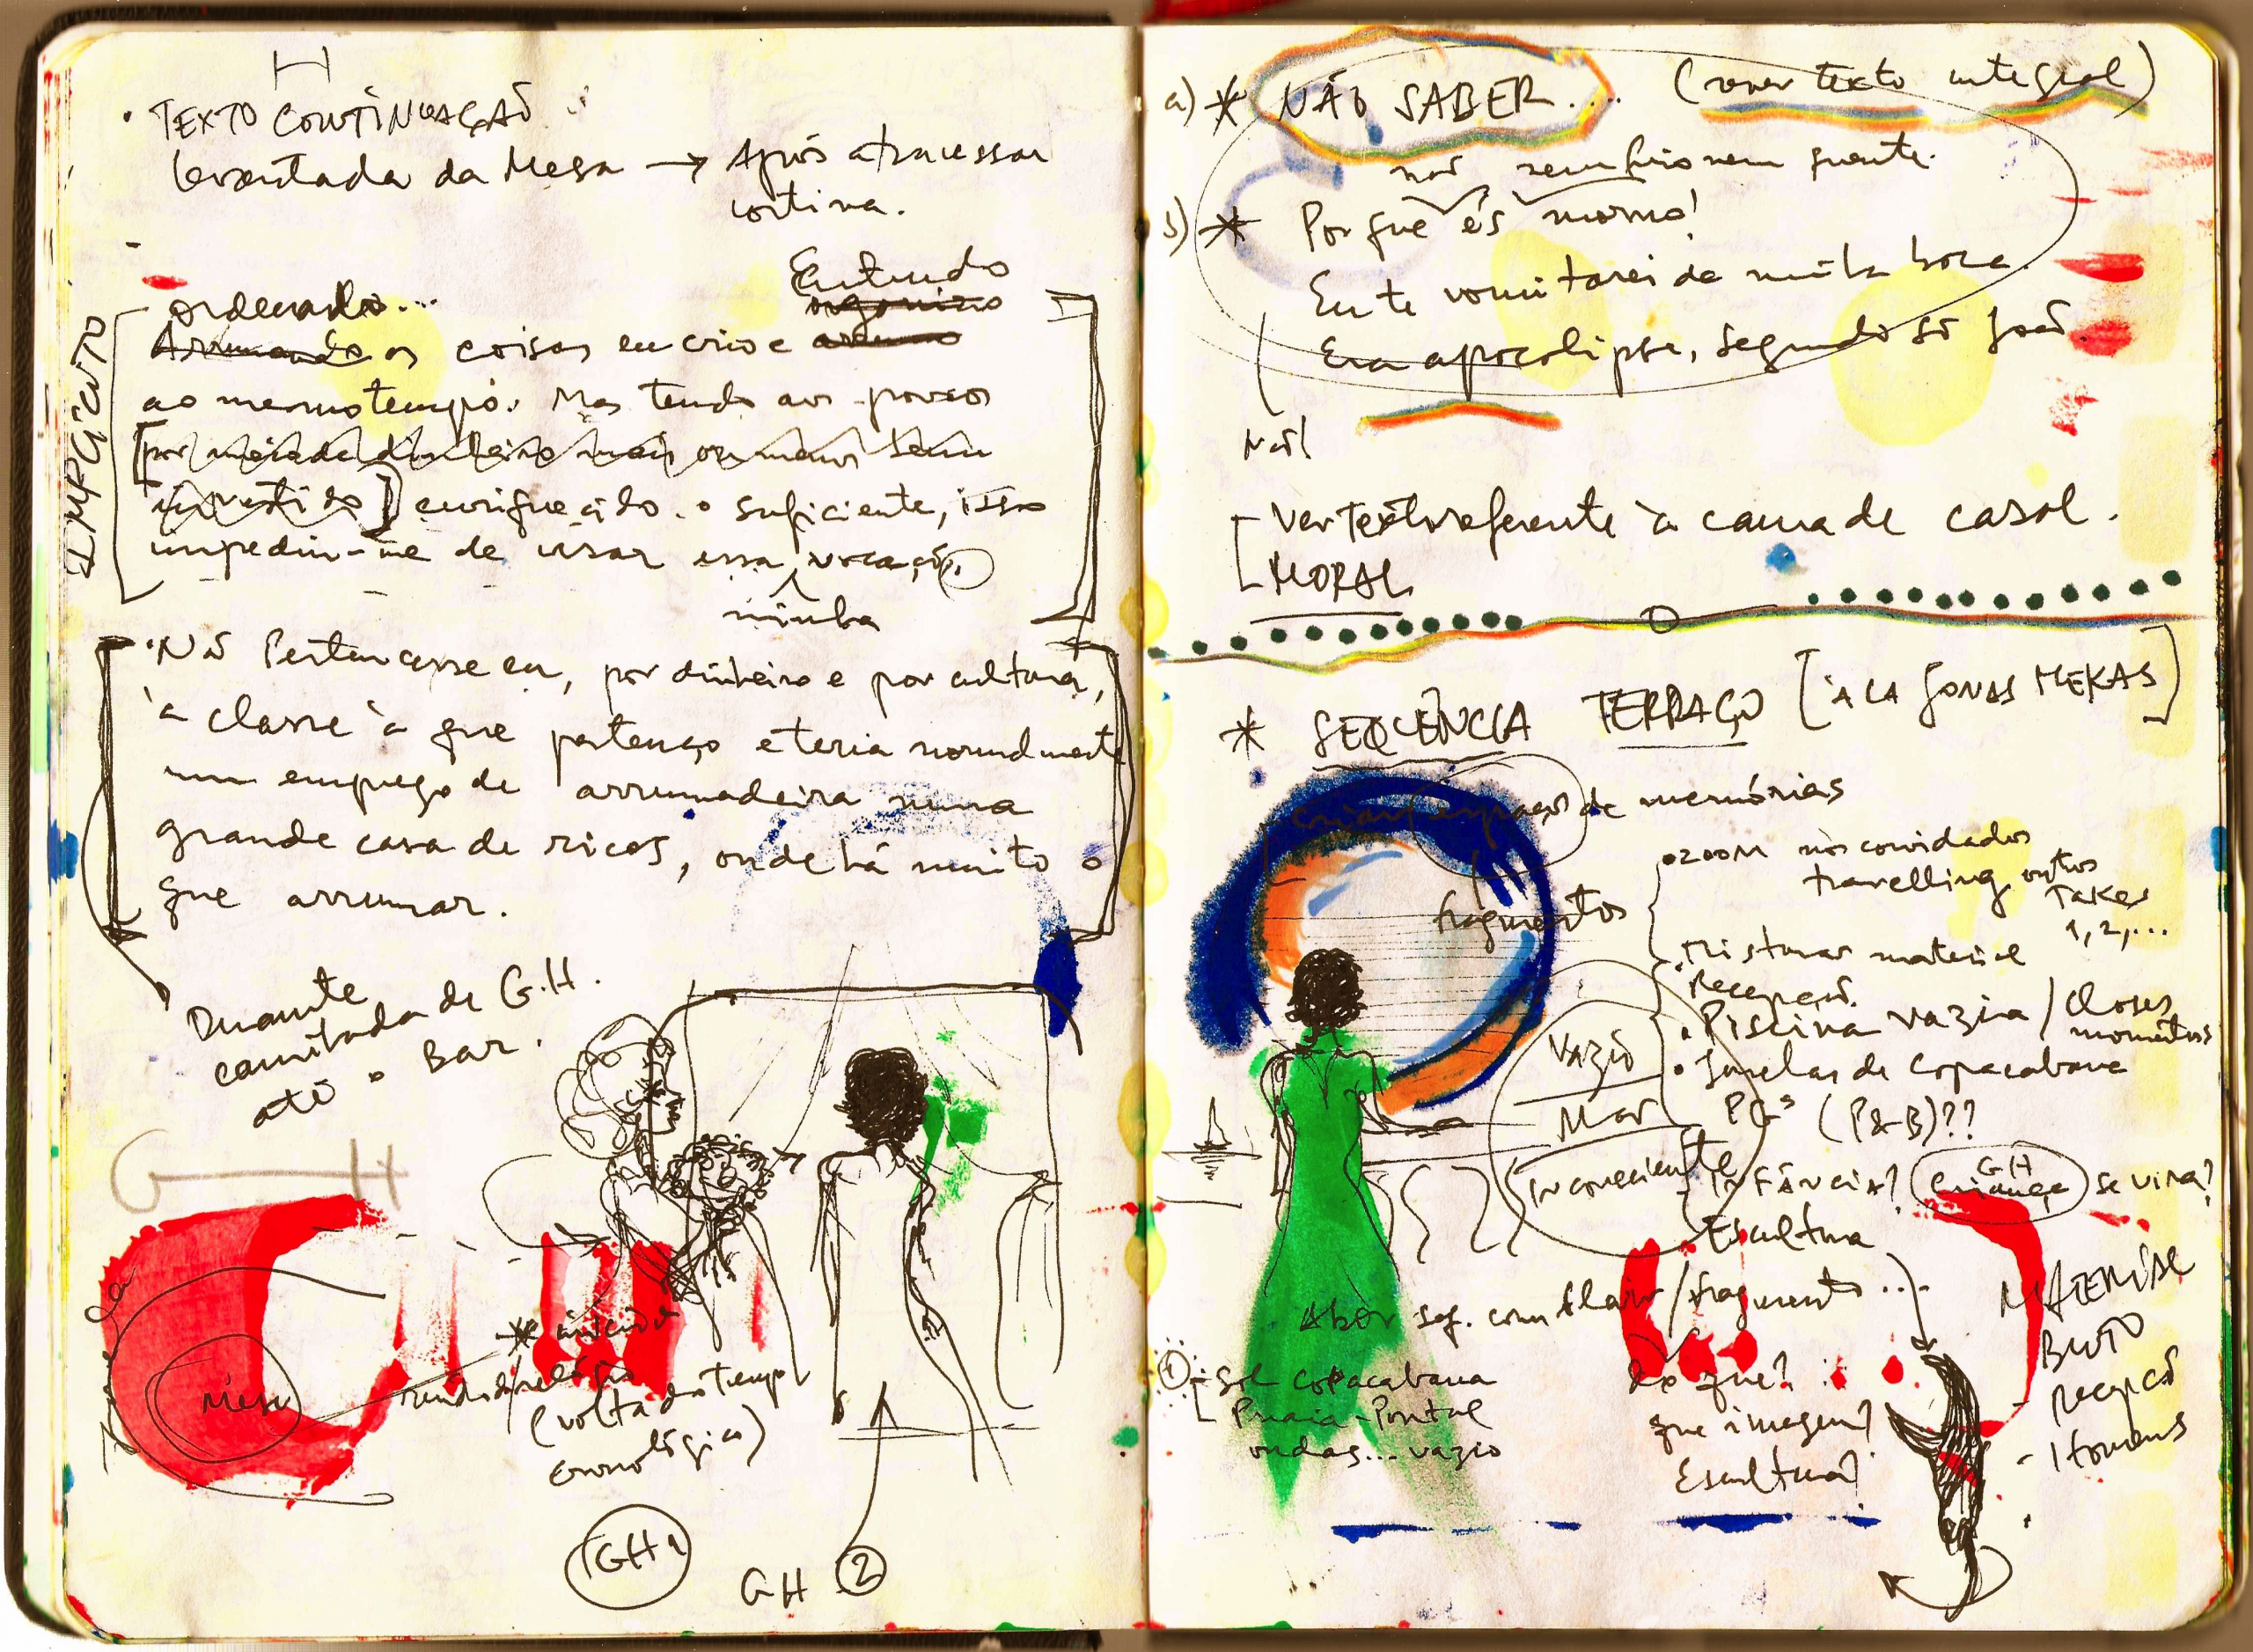 H
• TEXTO CONTINUAÇÃO
levantada da Mesa → Após atravessar
cortina.
Entendo
ordenando...
organizo
Arrumando as coisas eu crio e arrumo
IMPGCNTO
ao mesmo tempo. Mas tendo aos poucos
[por meio de dinheiro mais ou menos bem
investido] enriquecido o suficiente, isso
impediu-me de usar essa vocação.
minha
• Não Pertencesse eu, por dinheiro e por cultura,
à classe à que pertenço e teria normalmente
um emprego de arrumadeira numa
grande casa de ricos, onde há muito o
que arrumar.
Durante
caminhada de G.H.
até o Bar.
G H
Mesa
* início do
ruído do relógio
(volta do tempo
cronológico)
GH 1
GH 2
a) * NÃO SABER.... (rever texto integral)
não sem frio nem quente.
b) * Porque és morno!
Eu te vomitarei da minha boca.
Era apocalipse, segundo São João.
Não!
- Ver Texto referente à cama de casal.
- MORAL
* SEQUÊNCIA TERRAÇO [À LA JONAS MEKAS]
criar espaços de memórias
fragmentos
• ZOOM nos convidados
travelling outros
Takes
1, 2, ...
• Misturar material
Recepção.
• Piscina vazia / closes
momentos
• Janelas de Copacabana
PGs (P&B)??
Vazio
Mar
Inconsciente
- INFÂNCIA? GH criança se vira?
Escultura
Abor seq. com flair / fragmento ...
do que?
que imagem?
Escultura?
① - Sol Copacabana
Praia - Pontal
ondas... vazio
MATERIAL
BRUTO
- Recepção
- Homens